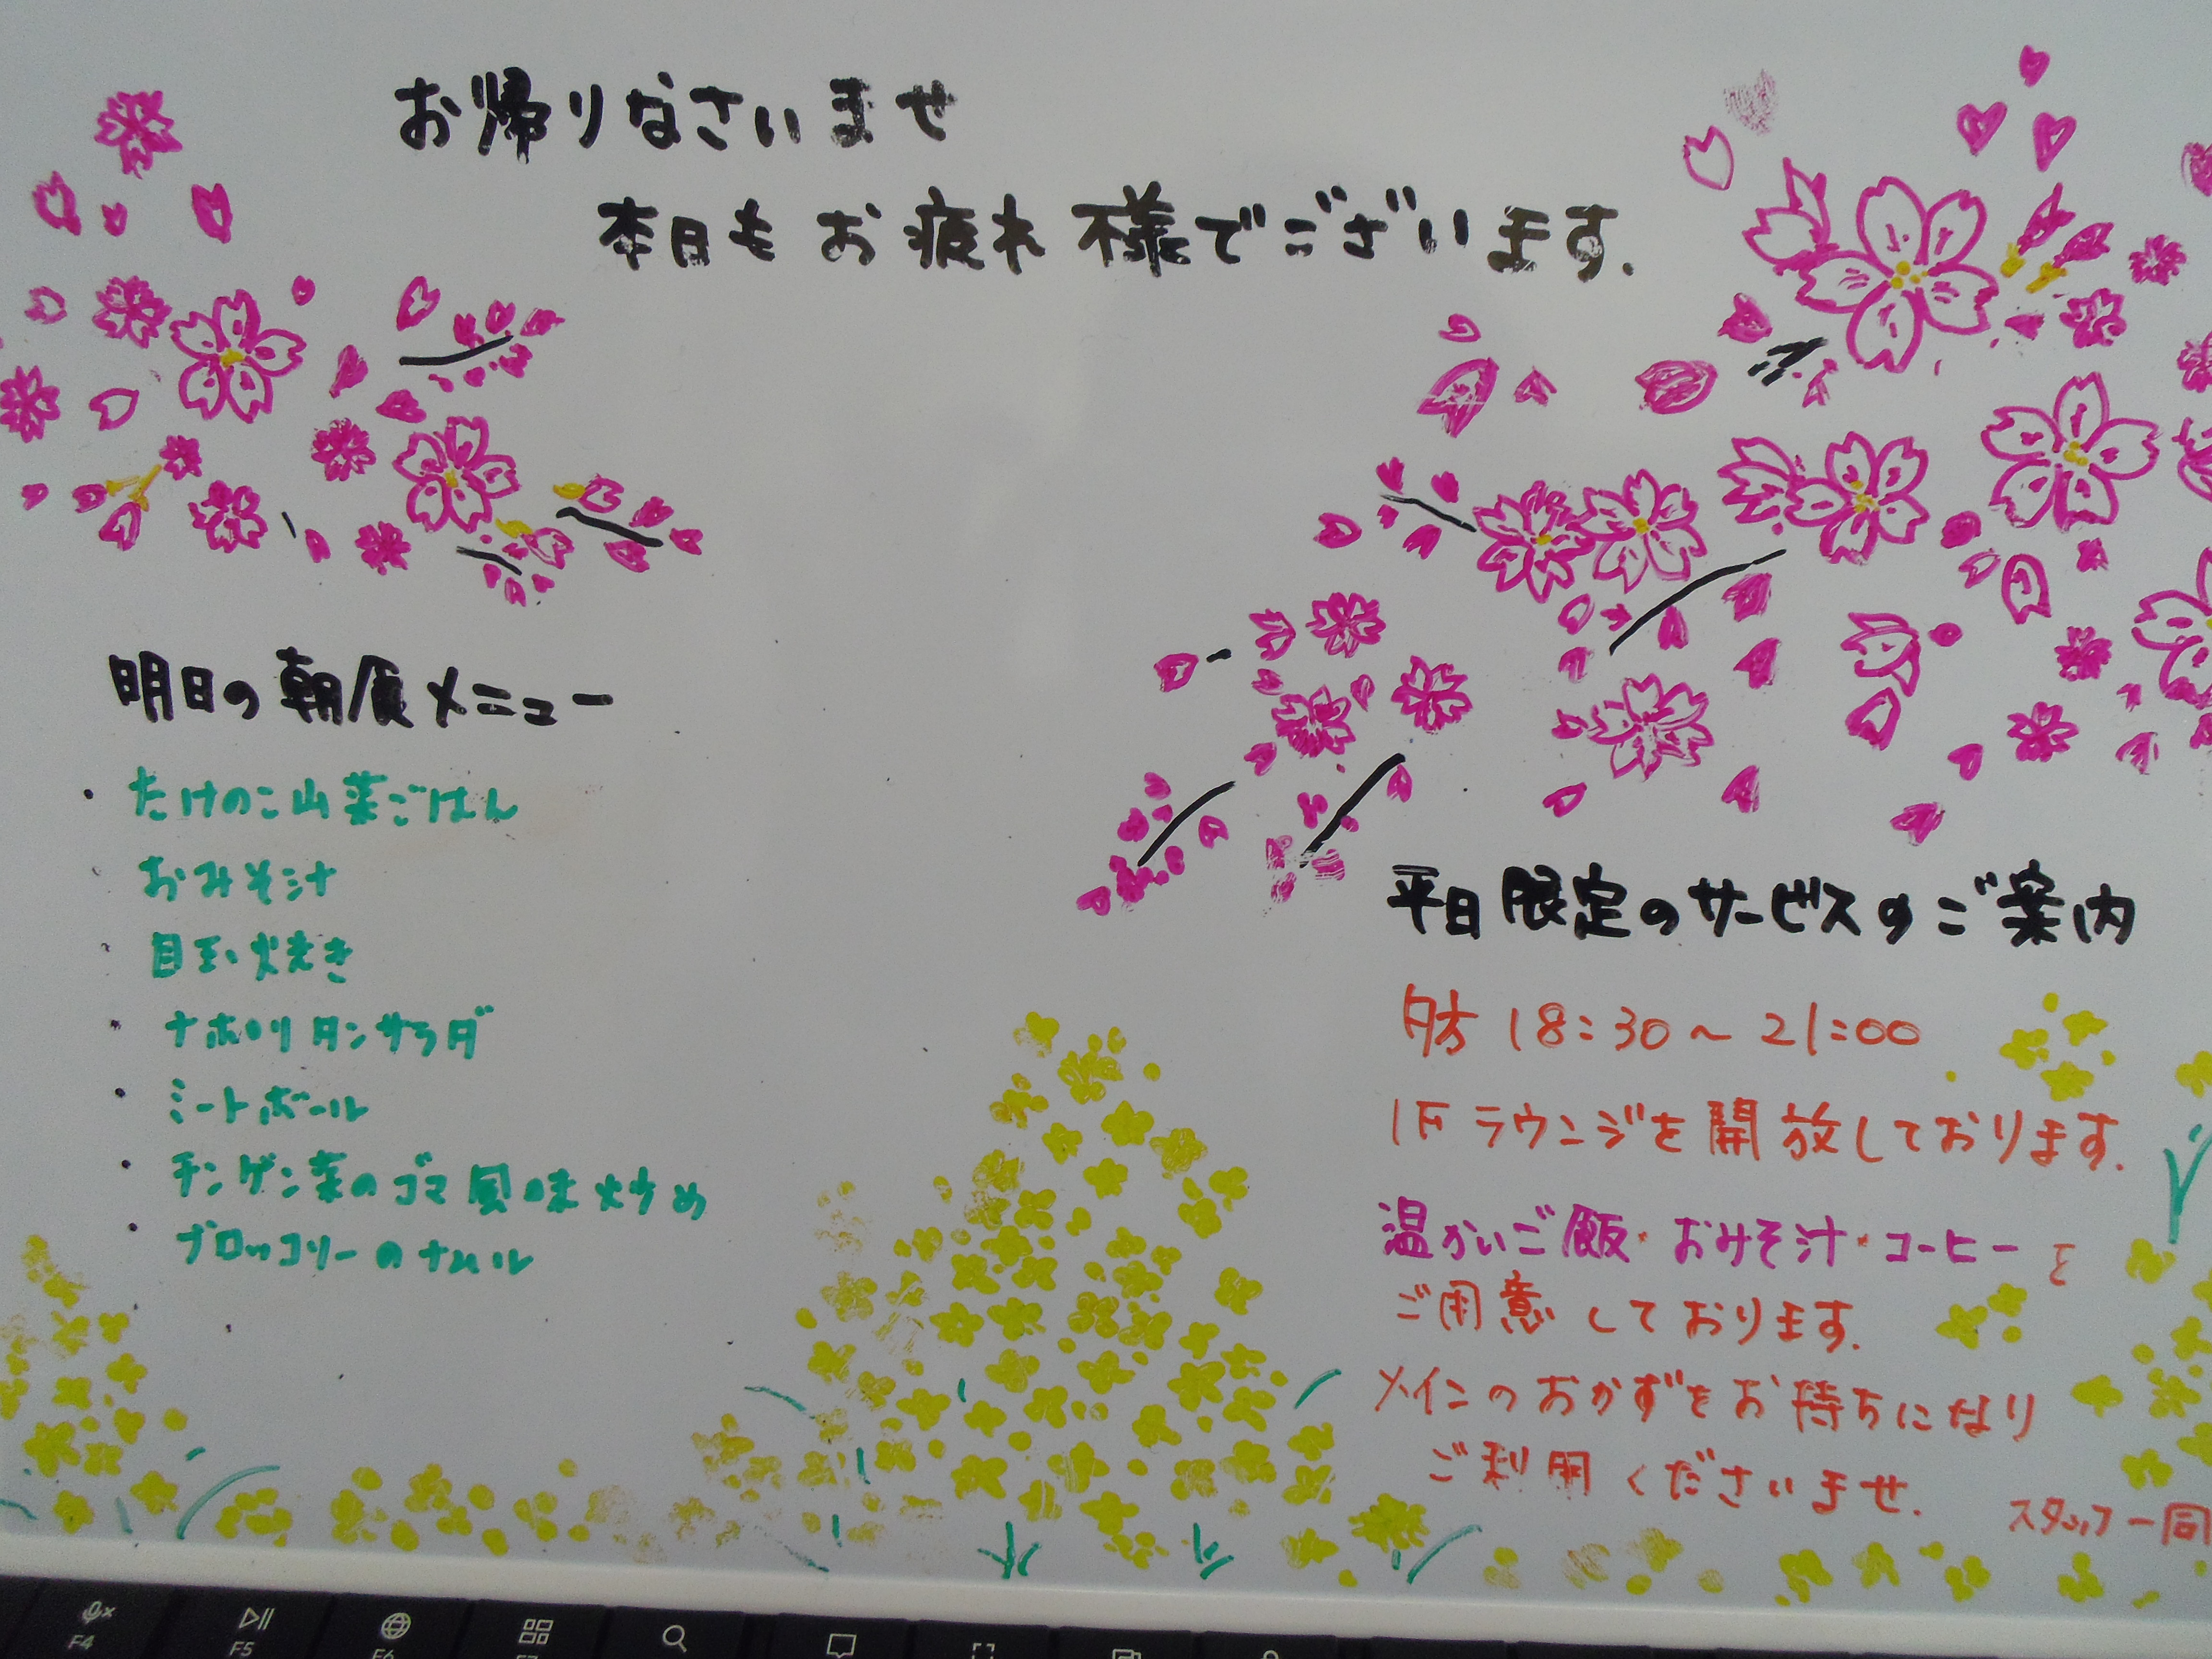 お帰りなさいませ
本日もお疲れ様でございます.
明日の朝食メニュー
・たけのこ山菜ごはん
・おみそ汁
・目玉焼き
・ナポリタンサラダ
・ミートボール
・チンゲン菜のゴマ風味炒め
・ブロッコリーのナムル
平日限定のサービスのご案内
夕方 18:30~21:00
1Fラウンジを開放しております.
温かいご飯・おみそ汁・コーヒーを
ご用意しております.
メインのおかずをお持ちになり
ご利用くださいませ.
スタッフ一同
F4
F5
F6
F7